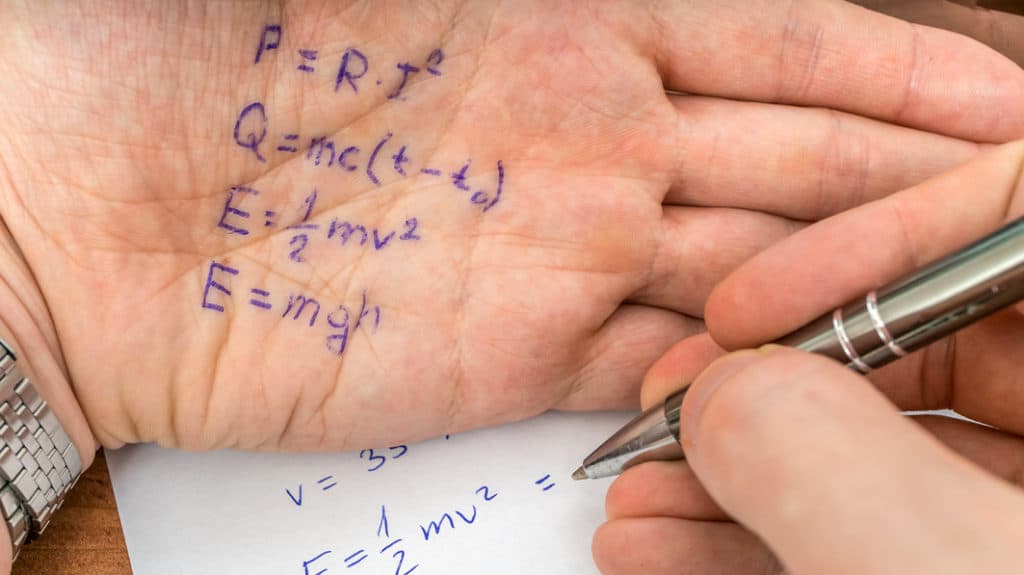 P = R · I²
Q = mc(t - t₀)
E = 1/2 mv²
E = mgh
v = 35
E = 1/2 mv² =